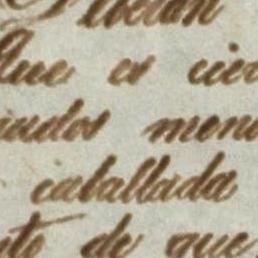 que es cier
iudos men
caballada
to de que